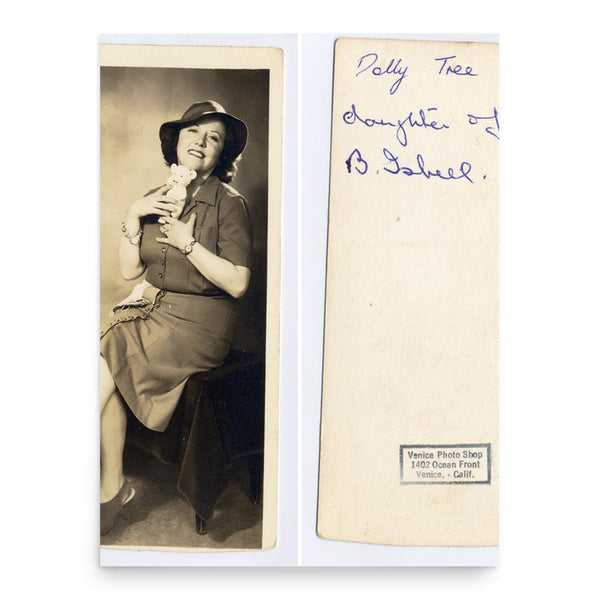 Dolly Tree
daughter of
B. Isbell.
Venice Photo Shop
1402 Ocean Front
Venice, - Calif.